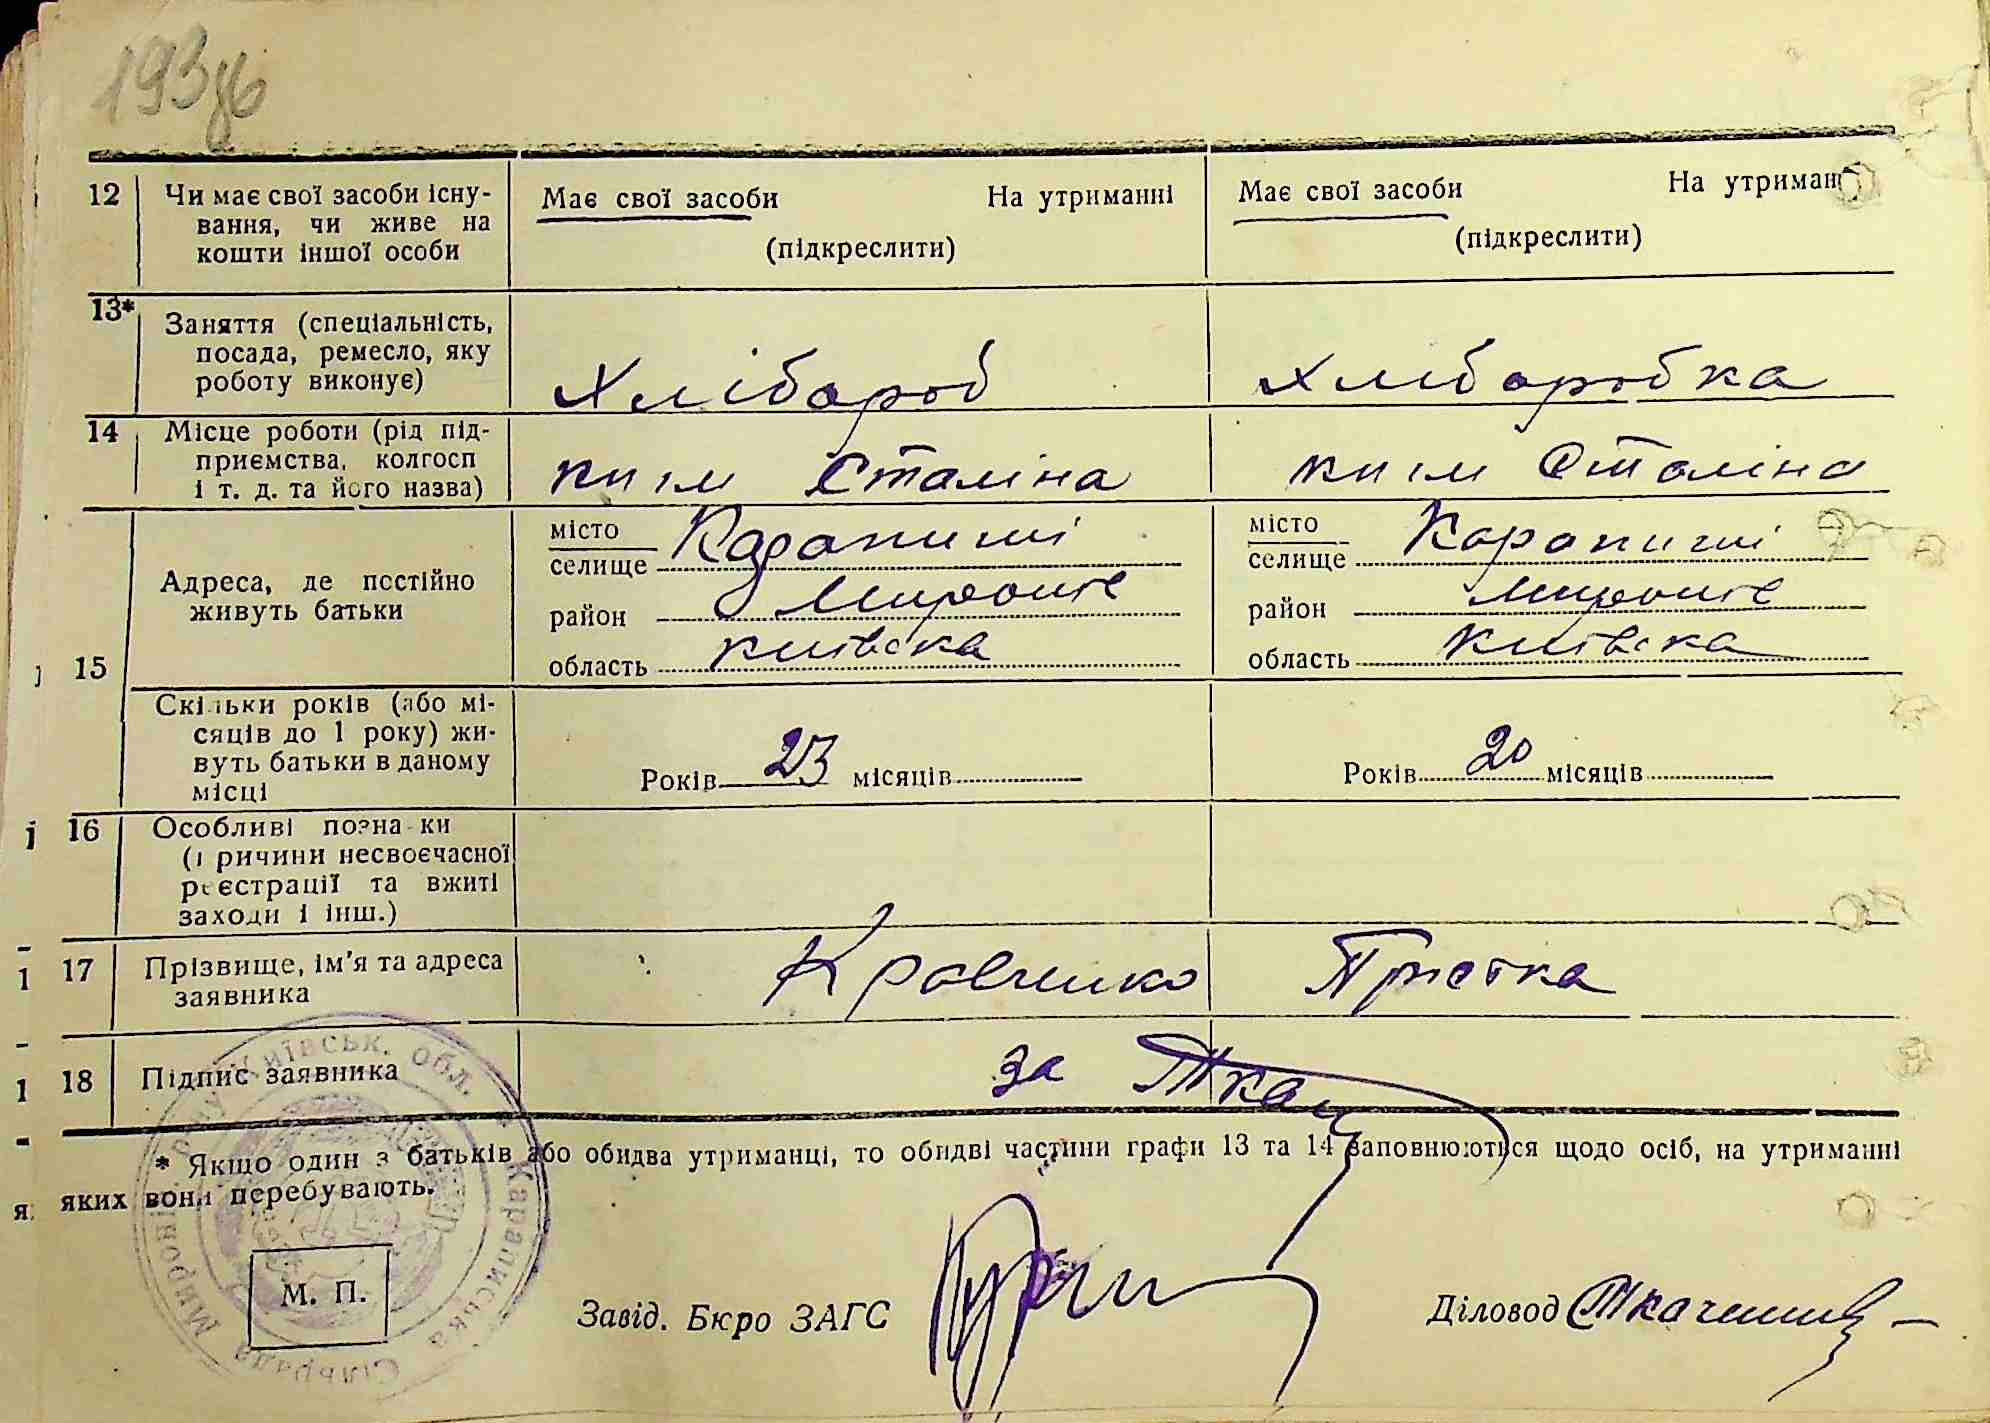 193
12 Чи має свої засоби існу-
вання, чи живе на
кошти іншої особи
Має свої засоби На утриманні
(підкреслити)
Має свої засоби На утриман
(підкреслити)
13* Заняття (спеціальність,
посада, ремесло, яку
роботу виконує)
Хлібороб
Хліборобка
14 Місце роботи (рід під-
приємства, колгосп
і т. д. та його назва)
к ім Сталіна
к ім Сталіна
15 Адреса, де постійно
живуть батьки
місто
селище Карапиші
район Миронів
область Київська
місто
селище Карапиші
район Миронів
область Київська
Скільки років (або мі-
сяців до 1 року) жи-
вуть батьки в даному
місці
Років 23 місяців
Років 20 місяців
16 Особливі познаки
(причини несвоєчасної
реєстрації та вжиті
заходи і інш.)
17 Прізвище, ім'я та адреса
заявника
Кравченко Пріська
18 Підпис заявника
за Ткач
* Якщо один з батьків або обидва утриманці, то обидві частини графи 13 та 14 заповнюються щодо осіб, на утриманні
яких вони перебувають.
Київськ. обл.
Караписька Сільрада
М. П.
Завід. Бюро ЗАГС
Діловод